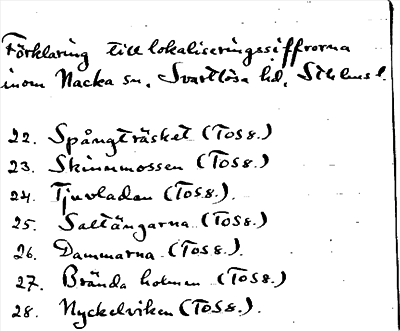 Förklaring till lokaliseringssiffrorna
inom Nacka sn, Svartlösa hd, Sthlms l.
22. Spångträsket (TOSs.)
23. Skinnmossen (TOSs.)
24. Tjuvladan (TOSs.).
25. Saltängarna (TOSs.)
26. Dammarna (TOSs.).
27. Brända holmen (TOSs.)
28. Nyckelviken (TOSs.).